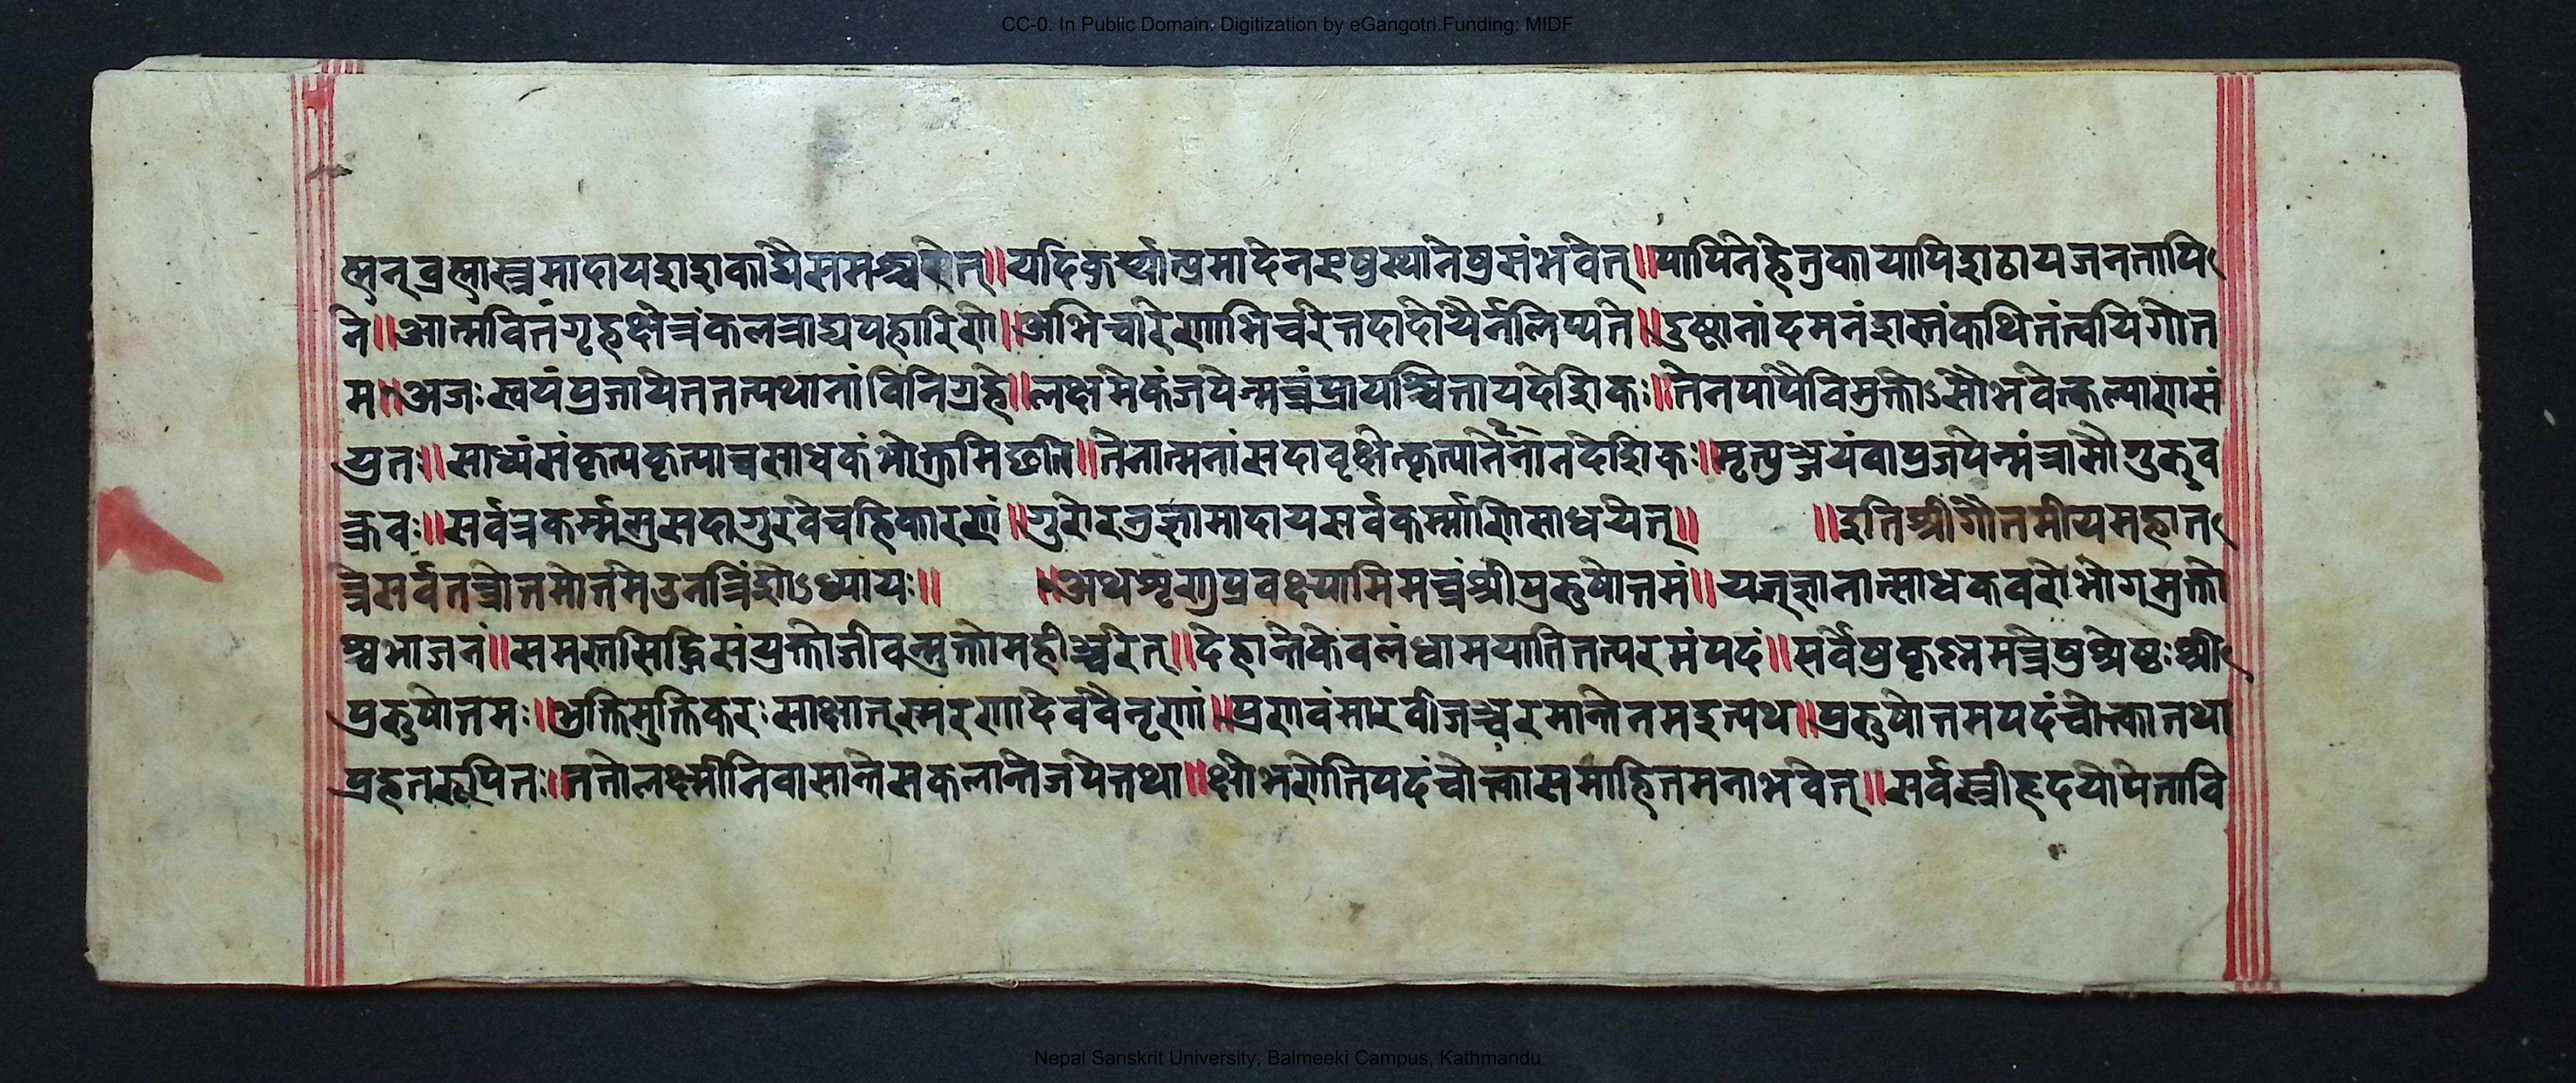 CC-0. In Public Domain. Digitization by eGangotri.Funding: MIDF
ह्मन् ब्रह्मास्त्रमादाय शशकाद्यै समश्चरेत्॥ यदि कुर्य्यात्प्रमादेन स्थानेषु संभवेत्॥ पापिने हेतुकायापि शठाय जनतापि
ने॥ आत्मवित्तं गृहक्षेत्रं कलत्राद्यपहारिणे॥ अभिचारेणाभिचरेत्तदा दोषैर्नलिप्यते॥ दुष्टानां दमनं शस्तं कथितं त्वयि गौत
म॥ अजः स्वयं प्रजायेत तत्पथानां विनिग्रहे॥ लक्षमेकं जपेन्मन्त्रं प्रायश्चित्ताय देशिकः॥ तेन पापैविमुक्तोऽसौ भवेत्कल्याणसं
युतः॥ साध्यं संकृत्य कृत्याच्च साधकं भोक्तुमिछति॥ तेनात्मनां सदा वृक्षेत्कृत्या देशिकः॥ मृत्युञ्जयं वा प्रजपेन्मंत्रासौ गुरुव
क्रवः॥ सर्वत्र कर्म्मसु सदा गुरवे च हि कारणं॥ गुरोरनुज्ञामादाय सर्वकर्म्माणि साधयेत्॥ ॥ इति श्रीगौतमीयमहात
न्त्रे सर्वतन्त्रोत्तमोत्तमे उनत्रिंशोऽध्यायः॥ ॥ अथ शृणु प्रवक्ष्यामि मन्त्रं श्रीपुरुषोत्तमं॥ यत् ज्ञानात्साधकवरो भोगमुक्तो
श्च भाजनं॥ समस्तसिद्धिसंयुक्तो जीवन्मुक्तो महीञ्चरेत्॥ देहान्ते केवलं धामयाति तत्परमं पदं॥ सर्वेषु कृष्णमन्त्रेषु श्रेष्ठः श्री
पुरुषोत्तमः॥ भुक्तिमुक्तिकरः साक्षात् स्मरणादेव वै नृणां॥ प्रणवं मारवीजञ्च रमान्ते नम इत्यथ॥ पुरुषोत्तमपदं चोत्का तथा
प्रहतरूपितः॥ ततो लक्ष्मीनिवासान्ते सकलान्ते जपेत्तथा॥ क्षोभणेति पदं चोत्का समाहितमना भवेत्॥ सर्वस्त्रीहृदयोपेता वि
Nepal Sanskrit University, Balmeeki Campus, Kathmandu